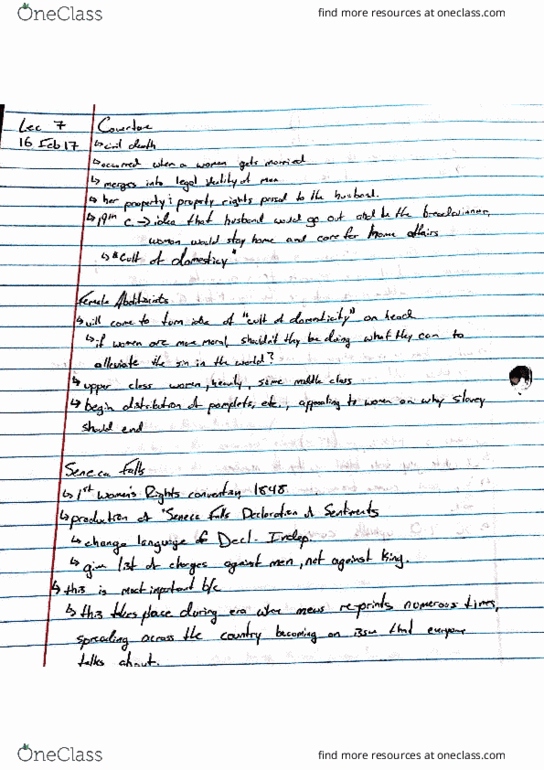 OneClass find more resources at oneclass.com
Lec 7 Coverture
16 Feb 17 ↳civil death
↳occurred when a women gets married
↳ merges into legal identity of man
↳ her property & property rights passed to the husband.
↳19th c. → idea that husband would go out and be the breadwinner,
women would stay home and care for home affairs
↳ "Cult of domesticy"
Female Abolitionists
↳will come to turn idea of "cult of domesticity" on head
↳if women are more moral, shouldn't they be doing what they can to
alleviate the sin in the world?
↳upper class women, some middle class
↳ begin distribution of pamplets, etc., appealing to women on why slavey
should end
Seneca Falls
↳ 1st Women's Rights convention 1848
↳production of "Seneca Falls Declaration of Sentiments
↳ change language of Decl. Indep.
↳ give list of charges against men, not against King.
↳this is most important b/c
↳ this takes place during era when news re-prints numerous times,
spreading across the country becoming an issue that everyone
talks about.
OneClass find more resources at oneclass.com